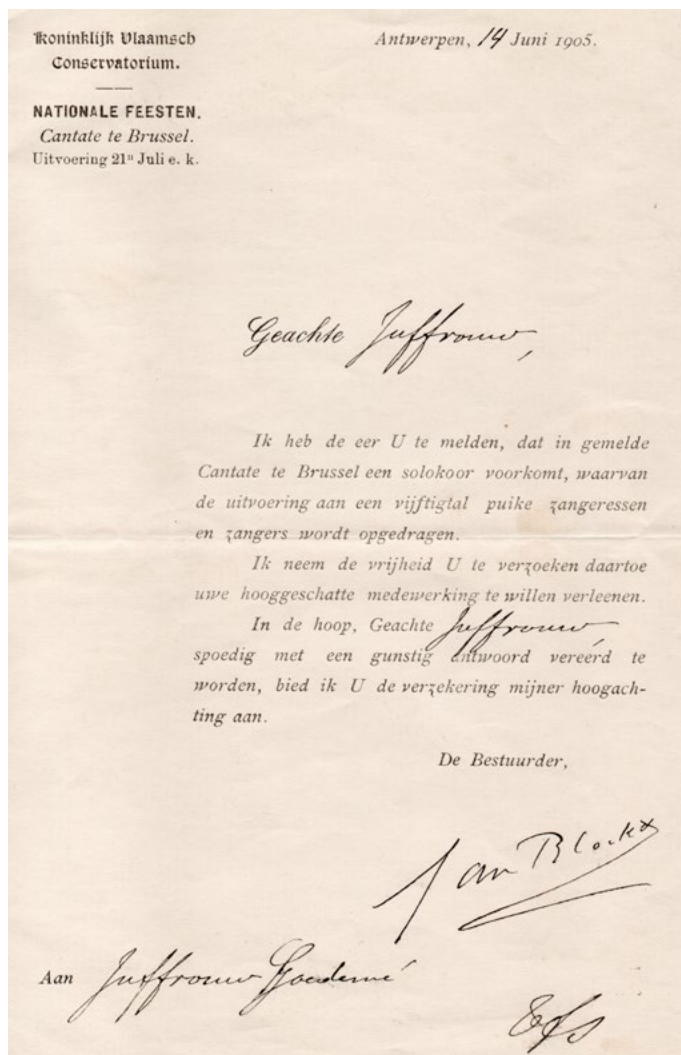 Koninklijk Vlaamsch
Conservatorium.
Antwerpen, 14 Juni 1905.
NATIONALE FEESTEN.
Cantate te Brussel.
Uitvoering 21n Juli e. k.
Geachte Juffrouw,
Ik heb de eer U te melden, dat in gemelde
Cantate te Brussel een solokoor voorkomt, waarvan
de uitvoering aan een vijftigtal puike zangeressen
en zangers wordt opgedragen.
Ik neem de vrijheid U te verzoeken daartoe
uwe hooggeschatte medewerking te willen verleenen.
In de hoop, Geachte Juffrouw,
spoedig met een gunstig antwoord vereerd te
worden, bied ik U de verzekering mijner hoogach-
ting aan.
De Bestuurder,
Jan Blockx
Aan Juffrouw Goedemé